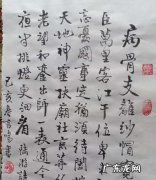 病骨支離紗帽
臣萬里客江干位卑
忘憂國事定猶須待闔
天地神靈扶廟社
老望和鑾出師一表通今
夜半挑燈更細看
己亥